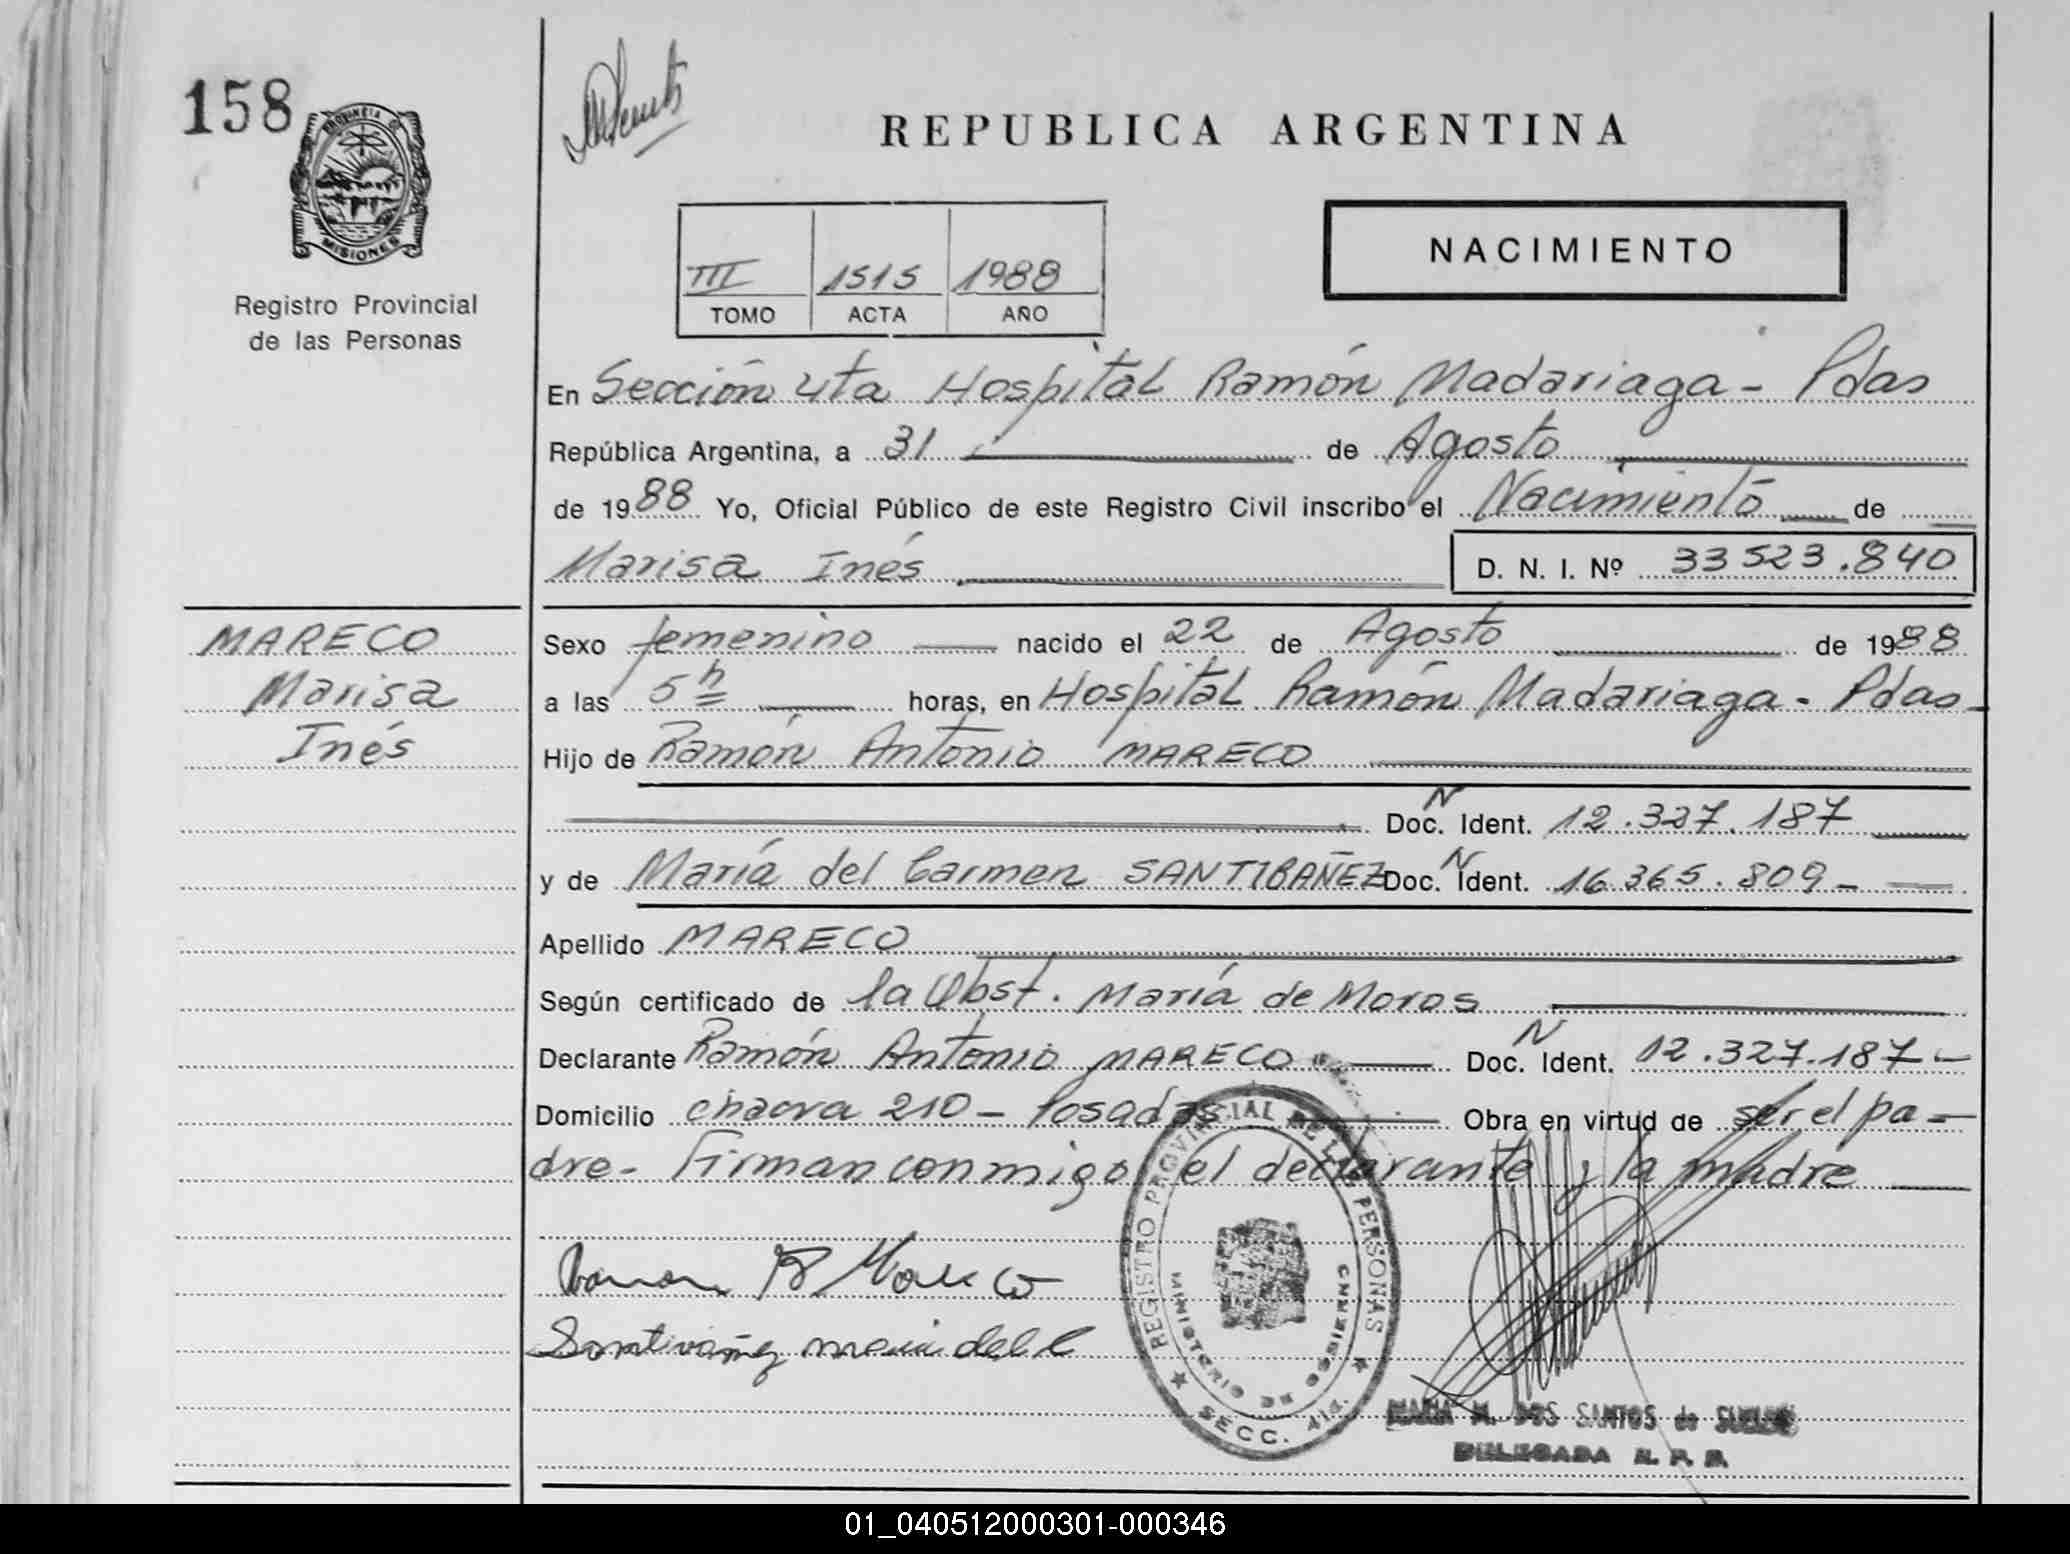 158
PROVINCIA DE
MISIONES
Registro Provincial
de las Personas
REPUBLICA ARGENTINA
III 1515 1988
TOMO ACTA AÑO
NACIMIENTO
En Sección 4ta Hospital Ramón Madariaga - Pdas
República Argentina, a 31 de Agosto
de 1988 Yo, Oficial Público de este Registro Civil inscribo el Nacimiento de
Marisa Inés D. N. I. Nº 33523.840
MARECO
Marisa
Inés
Sexo femenino nacido el 22 de Agosto de 1988
a las 5h horas, en Hospital Ramón Madariaga - Pdas -
Hijo de Ramón Antonio MARECO
N
Doc. Ident. 12.327.187
y de María del Carmen SANTIBAÑEZ Doc. N Ident. 16.365.809 -
Apellido MARECO
Según certificado de la Obst. María de Moros
Declarante Ramón Antonio MARECO Doc. N Ident. 12.327.187 -
Domicilio chacra 210 - Posadas Obra en virtud de ser el pa-
dre - Firman conmigo el declarante y la madre
Santivañez maria del C
REGISTRO PROVINCIAL DE LAS PERSONAS
MINISTERIO DE GOBIERNO
SECC. 4ta.
MARIA M. DOS SANTOS de
DELEGADA R. P. P.
01_040512000301-000346